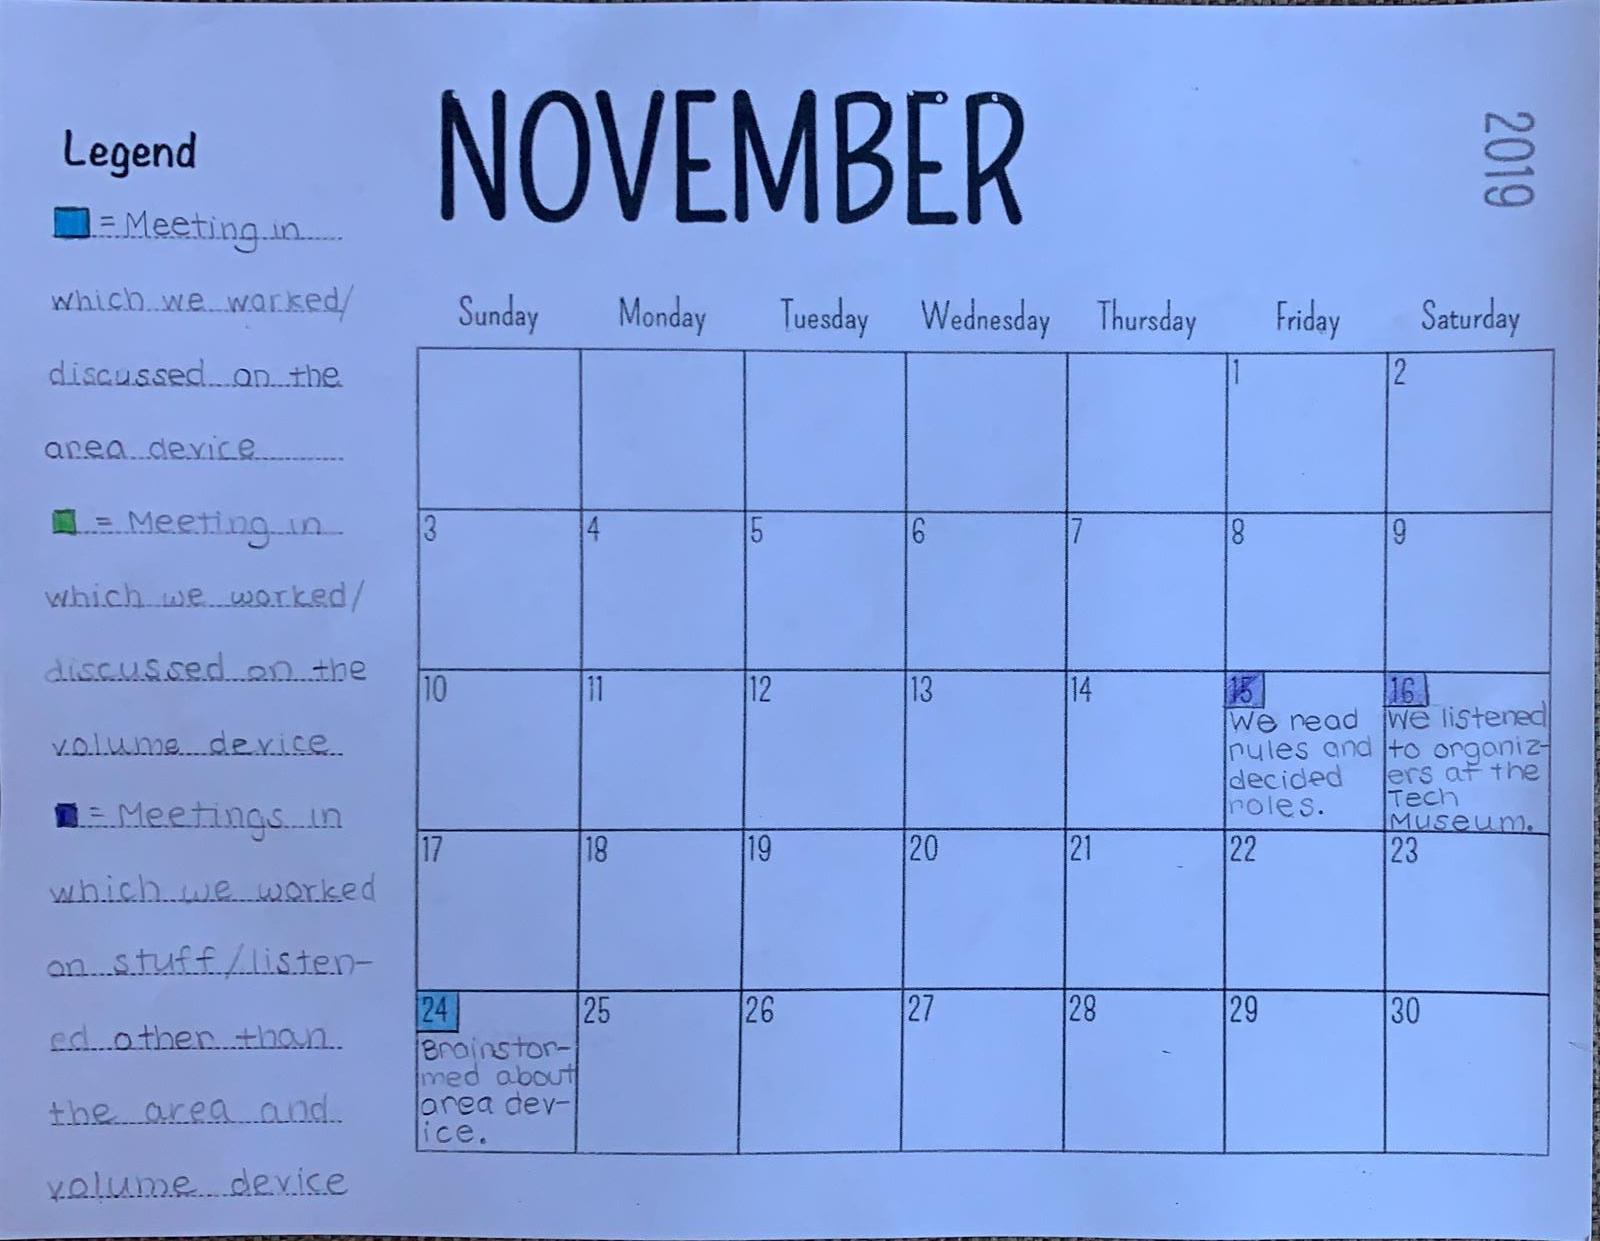 NOVEMBER
2019
Legend
= Meeting in
which we worked/
discussed on the
area device
= Meeting in
which we worked/
discussed on the
volume device
= Meetings in
which we worked
on stuff/listen-
ed other than
the area and
volume device
Sunday Monday Tuesday Wednesday Thursday Friday Saturday
1 2
3 4 5 6 7 8 9
10 11 12 13 14 15 16
We read
rules and
decided
roles.
We listened
to organiz-
ers at the
Tech
Museum.
17 18 19 20 21 22 23
24 25 26 27 28 29 30
Brainstor-
med about
area dev-
ice.